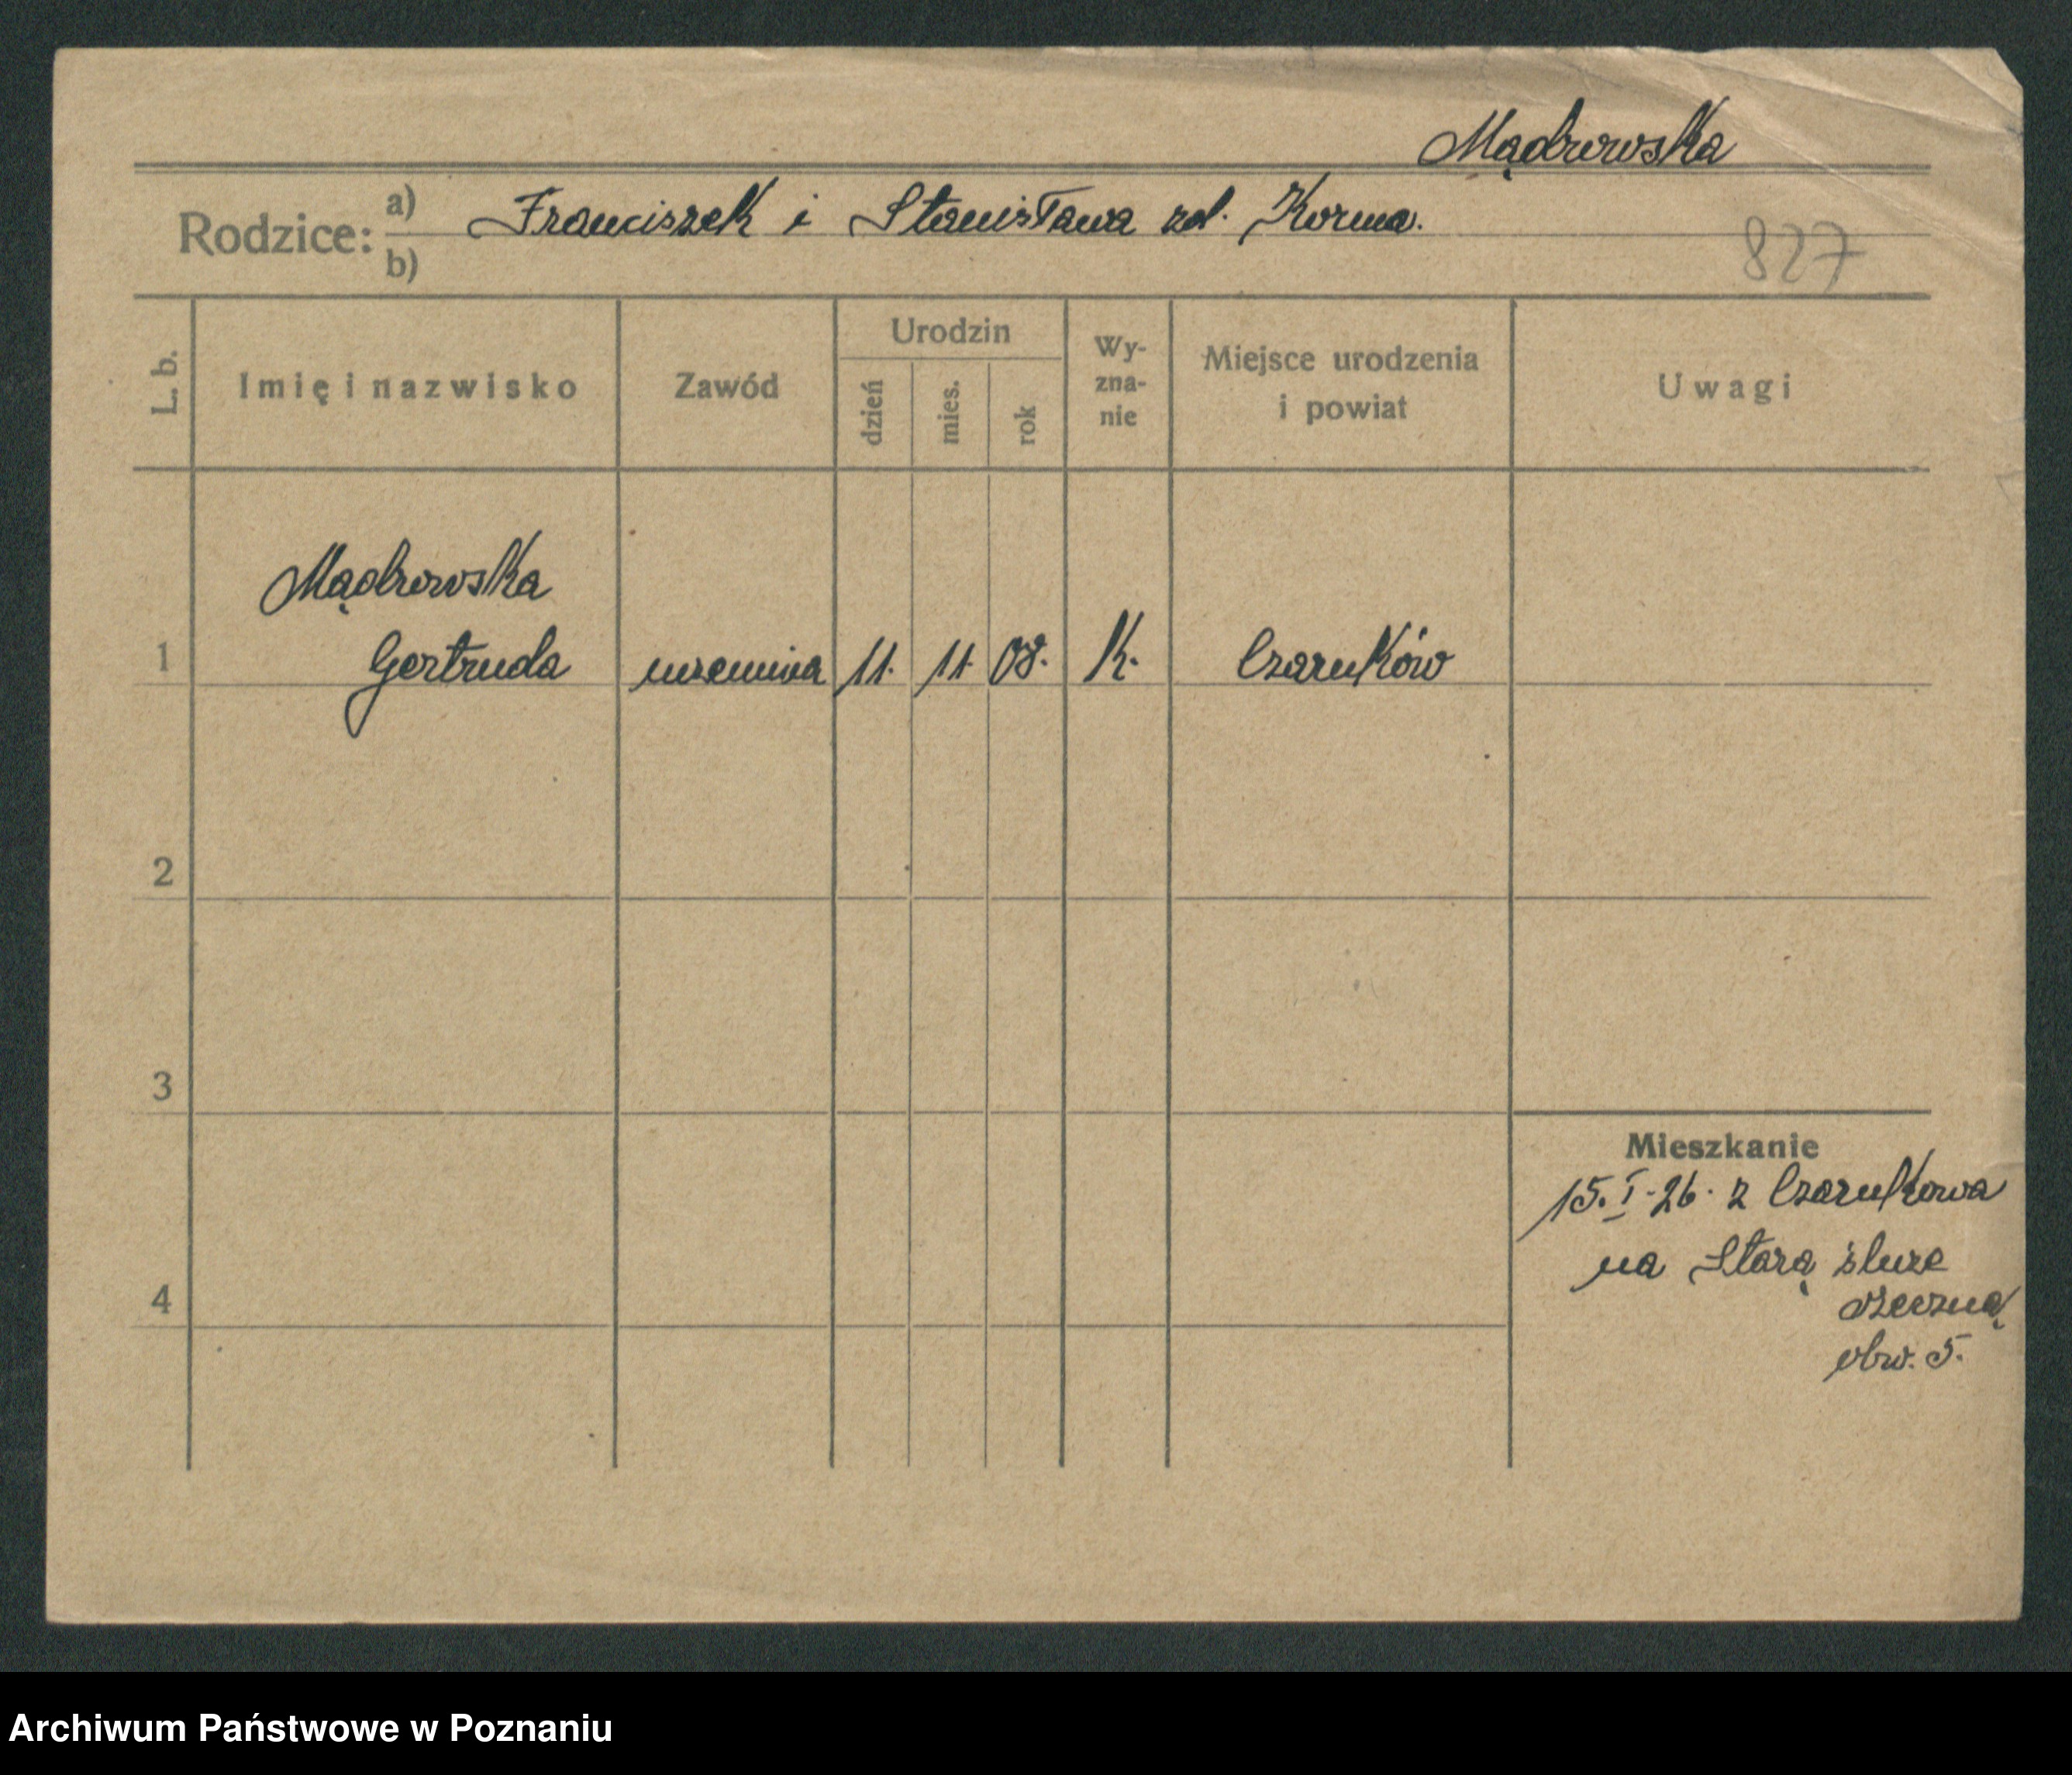 Mądrowska
Rodzice: a) Franciszek i Stanisława zd. Korma.
b)
827
L. b. Imię i nazwisko Zawód Urodzin dzień mies. rok Wy-zna-nie Miejsce urodzenia i powiat Uwagi
Mądrowska
1 Gertruda uczennica 11. 11. 08. K. Czarnków
2
3
Mieszkanie
15. I. 26. z Czarnkowa
na Starą śluze
4
obw. 5.
Archiwum Państwowe w Poznaniu